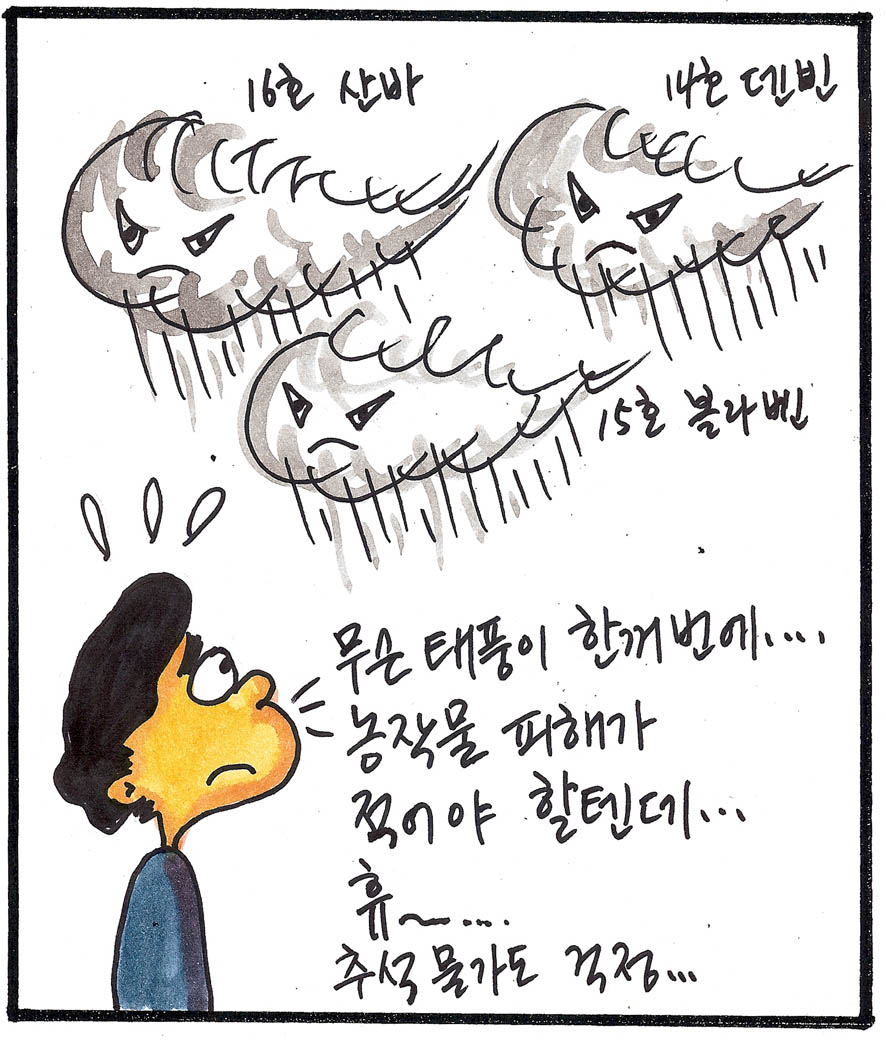 16호 산바
14호 덴빈
15호 볼라벤
무슨 태풍이 한꺼번에....
농작물 피해가
적어야 할텐데...
휴~....
추석 물가도 걱정...